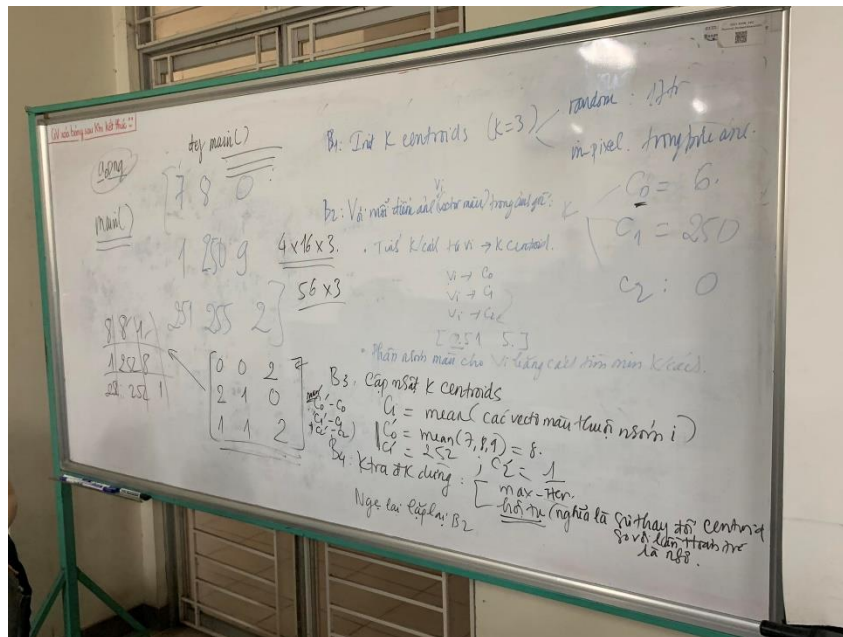 Giữ xóa bảng sau khi kết thúc
def main()
main()
[7 8 0
1 250 9
251 255 2]
4x16x3.
56x3
8 8 1
1 252 8
252 1
[0 0 2
2 1 0
1 1 2]
B1: Init K centroids (K=3)
random :
in-pixel. trong ảnh.
B2: Với mỗi điểm ảnh (vector màu) trong
C0 = 6.
C1 = 250
C2 : 0
. Tính K/cách từ vi → K centroid.
vi → C0
vi → C1
vi → C2
[ 251 5. ]
Phân nhóm màu cho vi bằng cách tìm min K/cách.
B3. Cập nhật K centroids
Ci = mean( các vectơ màu thuộc nhóm i )
C0' = mean(7,8,9) = 8.
C1' = 252 ; C2' = 1
C0' - C0
C1' - C1
C2' - C2
B4: Ktra đK dừng :
max-iter.
hội tụ (nghĩa là sự thay đổi centroid
so với lần trước
là nhỏ.
Ngc lại lặp lại B2